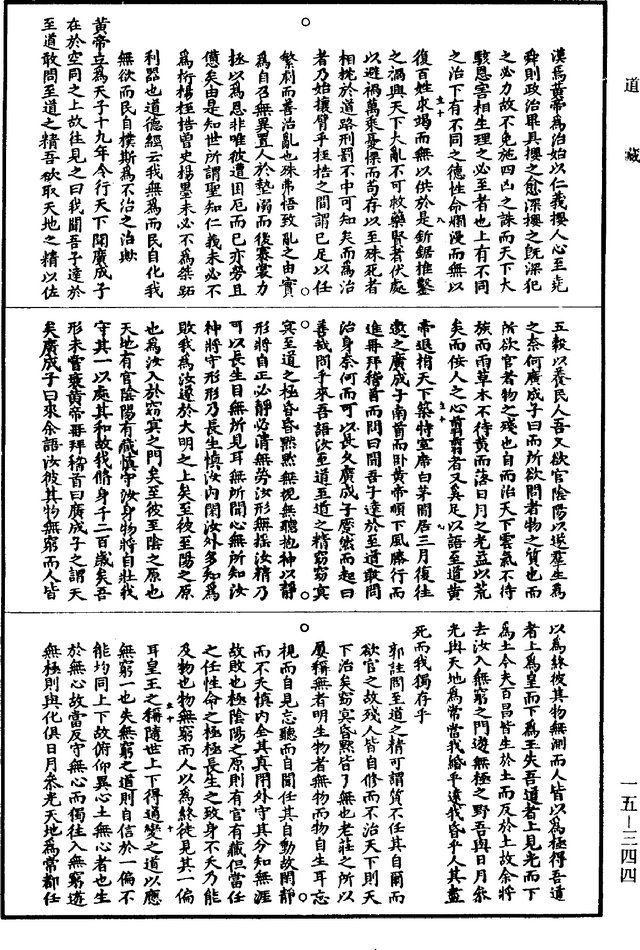 道藏
漢焉黄帝為治始以仁義攖人心至堯
舜則政治畢具攖之愈深攖之既深犯
之必力故不免施四凶之誅而天下大
駭恩害相生理之必至者也上有不同
之治下有不同之德性命爛漫而無以
復百姓求竭而無以供於是釿鋸椎鑿
之禍興天下大亂不可救藥賢者伏處
以避禍萬乘憂慄而苟存以至殊死者
相枕於道路刑罰不中可知矣而為治
者乃始攘臂乎桎梏之間謂已足以任
繁劇而善治亂也殊弗悟致亂之由實
為自召無異置人於墊溺而後褰裳力
拯以為恩非唯彼遭困厄而已亦勞且
憊矣由是知世所謂聖知仁義未必不
為桁楊桎梏曾史楊墨未必不為桀跖
利器也道德經云我無為而民自化我
無欲而民自樸斯為不治之治歟
黄帝立為天子十九年令行天下聞廣成子
在於空同之上故往見之曰我聞吾子達於
至道敢問至道之精吾欲取天地之精以佐
五穀以養民人吾又欲官陰陽以遂羣生為
之奈何廣成子曰而所欲問者物之質也而
所欲官者物之殘也自而治天下雲氣不待
族而雨草木不待黄而落日月之光益以荒
矣而佞人之心翦翦者又奚足以語至道黄
帝退捐天下築特室席白茅閒居三月復往
邀之廣成子南首而卧黄帝順下風膝行而
進再拜稽首而問曰聞吾子達於至道敢問
治身奈何而可以長久廣成子蹷然而起曰
善哉問乎來吾語汝至道至道之精窈窈冥
冥至道之極昏昏黙黙無視無聽抱神以靜
形將自正必靜必清無勞汝形無揺汝精乃
可以長生目無所見耳無所聞心無所知汝
神將守形形乃長生慎汝内閉汝外多知為
敗我為汝遂於大明之上矣至彼至陽之原
也為汝入於窈冥之門矣至彼至陰之原也
天地有官陰陽有藏慎守汝身物將自壯我
守其一以處其和故我脩身千二百歲矣吾
形未嘗衰黄帝再拜稽首曰廣成子之謂天
矣廣成子曰來余語汝彼其物無窮而人皆
以為終彼其物無測而人皆以為極得吾道
者上為皇而下為王失吾道者上見光而下
為土今夫百昌皆生於土而反於土故余將
去汝入無窮之門遊無極之野吾與日月參
光與天地為常當我緡乎遠我昏乎人其盡
死而我獨存乎
郭註問至道之精可謂質不任其自爾而
欲官之故殘人皆自修而不治天下則天
下治矣窈冥昏黙皆了無也老莊之所以
屢稱無者明生物者無物而物自生耳忘
視而自見忘聽而自聞任其自動故閑靜
而不夭慎内全其真閉外守其分知無涯
故敗也極陰陽之原則有官有藏但當任
之任性命之極極長生之致身不夭乃能
及物也物無窮而人以為終徒見其一偏
耳皇王之稱隨世上下得通變之道以應
無窮一也失無窮之道則自信於一偏不
能均同上下故俯仰異心土無心者也生
於無心故當反守無心而獨往入無窮遊
無極則與化俱日月參光天地為常都任
一五—三四四